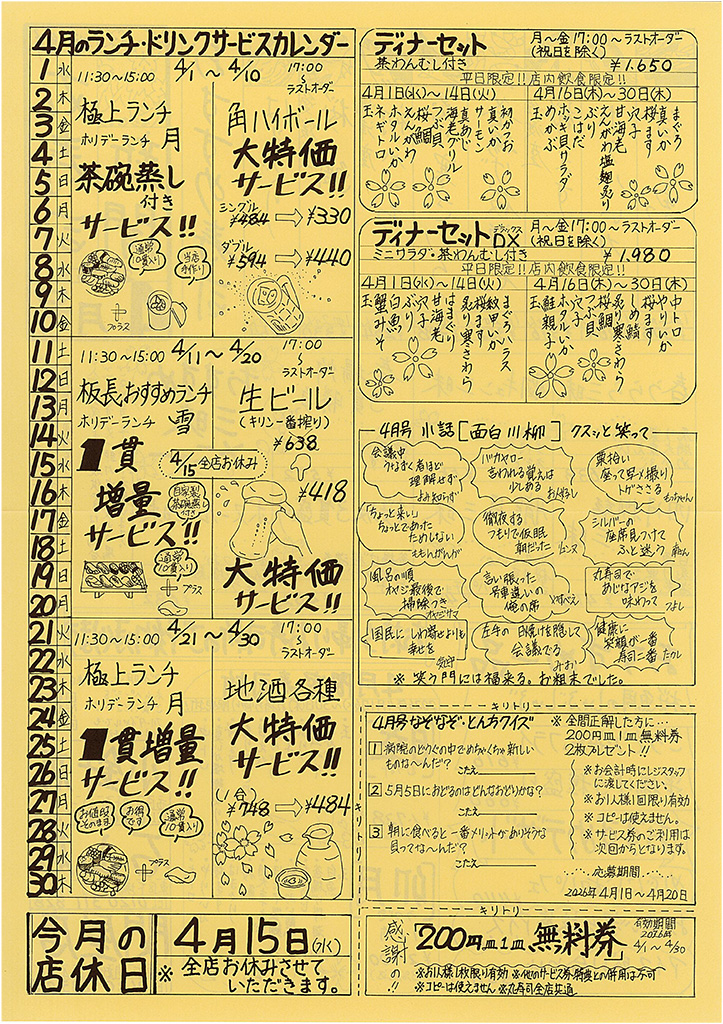 4月のランチ・ドリンクサービスカレンダー
1 水
2 木
3 金
4 土
5 日
6 月
7 火
8 水
9 木
10 金
11 土
12 日
13 月
14 火
15 水
16 木
17 金
18 土
19 日
20 月
21 火
22 水
23 木
24 金
25 土
26 日
27 月
28 火
29 水
30 木
11:30〜15:00 4/1〜4/10 17:00〜ラストオーダー
極上ランチ
ホリデーランチ 月
茶碗蒸し
付き
サービス!!
通常10貫入り
当店手作り
プラス
角ハイボール
大特価
サービス!!
シングル
¥484⇨¥330
ダブル
¥594⇨¥440
11:30〜15:00 4/11〜4/20 17:00〜ラストオーダー
板長おすすめランチ
ホリデーランチ 雪
1貫
増量
サービス!!
4/15全店お休み
自家製茶碗蒸し付き
通常10貫入り
プラス
生ビール
(キリン一番搾り)
¥638
¥418
大特価
サービス!!
11:30〜15:00 4/21〜4/30 17:00〜ラストオーダー
極上ランチ
ホリデーランチ 月
1貫増量
サービス!!
お値段そのまま
お得です
通常10貫入り
プラス
地酒各種
大特価
サービス!!
(1合)
¥748⇨¥484
今月の
店休日
4月15日(水)
※全店お休みさせて
いただきます。
ディナーセット 月〜金17:00〜ラストオーダー
(祝日を除く)
茶わんむし付き ¥1.650
平日限定!!店内飲食限定!!
4月1日(水)〜14日(火)
初かつお
真いか
サーモン
真あじ
海老グリル
つぶ貝
桜鯛
えんがわ
ホタルいか
ネギトロ
玉
4月16日(木)〜30日(木)
まぐろ
真いか
桜ます
穴子
甘海老
えんがわ塩麹炙り
ぶり
こはだ
ホッキ貝サラダ
めかぶ
玉
ディナーセットDX デラックス 月〜金17:00〜ラストオーダー
(祝日を除く)
ミニサラダ・茶わんむし付き ¥1.980
平日限定!!店内飲食限定!!
4月1日(水)〜14日(火)
まぐろハラス
紋甲いか
桜ます
炙り寒さわら
はまぐり
甘海老
穴子
ぶり
白魚
蟹みそ
玉
4月16日(木)〜30日(木)
中トロ
やりいか
桜ます
しめ鯖
炙り寒さわら
桜鯛
つぶ貝
穴子
ホタルいか
鮭親子
玉
4月号 小話[面白川柳]クスッと笑って
会議中
うなずく者ほど
理解せず
よみ知らず
バカヤロー
言われる覚えは
少しある
栗拾い
座って早メ撮り
トゲささる
もっちゃん
「ちょっと来い」
ちょっとであった
ためしない
ももんがんが
徹夜する
つもりで仮眠
朝だった
シルバーの
座席見つけて
ふと迷う
風呂の順
オヤジ最後で
掃除つき
オヤジサマ
言い張った
号車違いの
俺の席
丸寿司で
あじなアジを
味わって
つよし
国民に しわ寄せよりも
幸せを
左手の 日焼けを隠して
会議でる
みお
健康に
笑顔が一番
寿司二番
たカし
※笑う門には福来る。お粗末でした。
キリトリ
4月号なぞなぞ・とんちクイズ
1 病院のどうぐの中でめちゃくちゃ新しい
ものな〜んだ?
こたえ
2 5月5日におどるのはどんなおどりかな?
こたえ
3 朝に食べると一番メリットがありそうな
貝ってな〜んだ?
こたえ
※全問正解した方に…
200円皿1皿無料券
2枚プレゼント!!
※お会計時にレジスタッフ
に渡してください。
※お1人様1回限り有効
※コピーは使えません。
※サービス券のご利用は
次回からとなります。
応募期間
2026年4月1日〜4月20日
キリトリ
キリトリ
感謝の!!
「200円皿1皿無料券」
有効期間
2026年
4/1〜4/30
※お1人様1枚限り有効 ※他のサービス券・特典との併用は不可
※コピーは使えません ※丸寿司全店共通